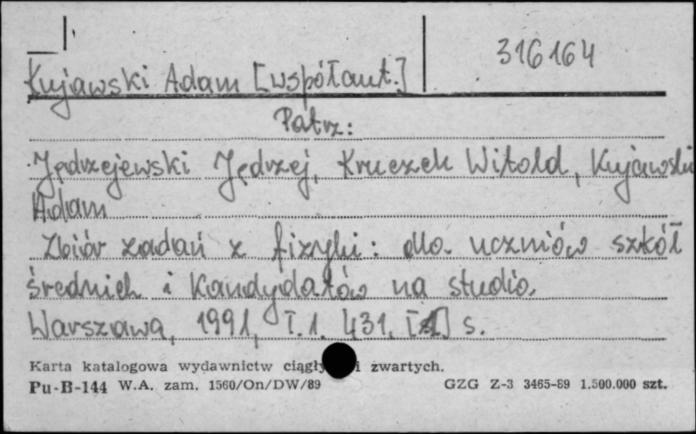 316164
Kujawski Adam [współaut.]
Patrz:
Jędrzejewski Jędrzej, Kruczek Witold, Kujawski
Adam
Zbiór zadań z fizyki: dla uczniów szkół
średnich i kandydatów na studia.
Warszawa, 1991, T.1. 431, [1] s.
Karta katalogowa wydawnictw ciągły i zwartych.
Pu-B-144 W.A. zam. 1560/On/DW/89 GZG Z-3 3465-89 1.500.000 szt.